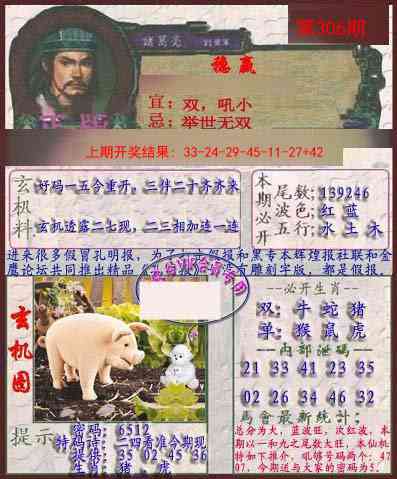 第306期
諸葛亮
稳赢
宜：双，吼小
忌：举世无双
上期开奖结果：33-24-29-45-11-27+42
玄机料
好码一五合重开，三伴二十齐齐来
玄机透露二七现，二三相加连一连
本期必开
尾数：139246
波色：红 蓝
五行：水 土 木
进来很多假冒孔明报，为了
假报和黑专本辉煌报社联和金
鹰论坛共同推出精品
没有雕刻字版，都是假报。
玄机图
--必开生肖--
双：牛 蛇 猪
单：猴 鼠 虎
--内部泄码--
21 33 41 23 35
02 26 34 46 32
馬會最新統計：
总分为大，蓝波旺，次红波，本
期以一和九之尾数大旺，本仙机
特如下推介，吼够号码两个：47
07，今期送与大家的密码为5．
提示
密码：6512
特码诗：二四看准今期现
提供：35 02 45 36
生肖：猪．虎